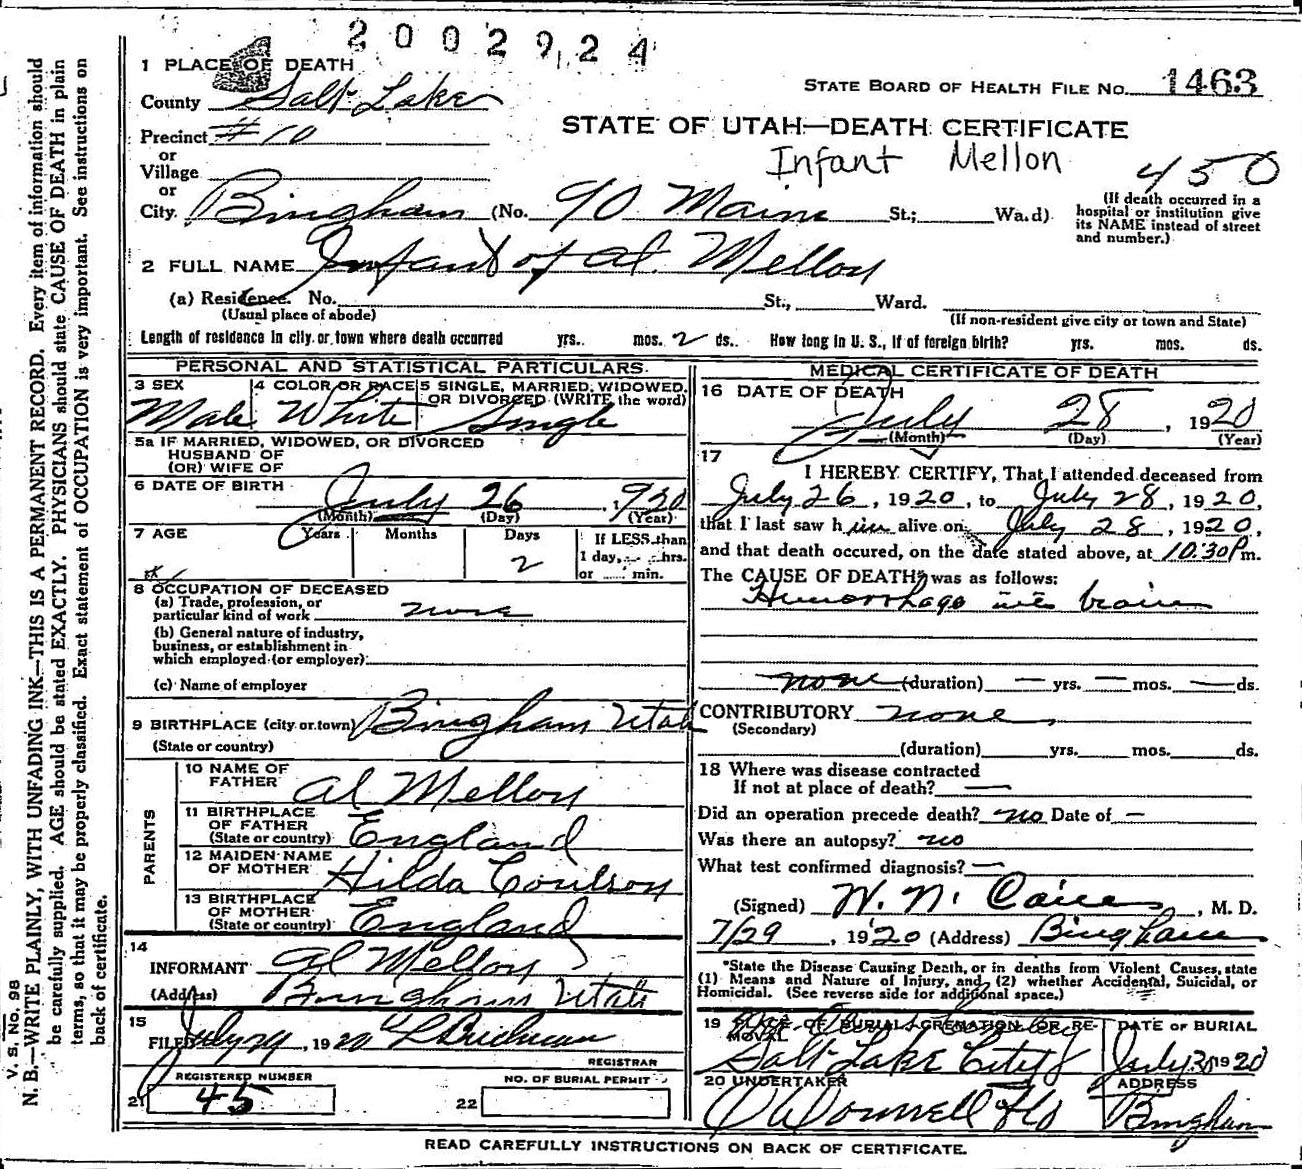 2002924
1 PLACE OF DEATH
STATE BOARD OF HEALTH FILE No. 1463
County Salt Lake
Precinct #10
STATE OF UTAH—DEATH CERTIFICATE
or
Village
Infant Mellon
450
or
City. Bingham (No. 90 Main St.; Ward)
(If death occurred in a
hospital or institution give
its NAME instead of street
and number.)
2 FULL NAME Infant of Al. Mellon
(a) Residence. No. St., Ward.
(Usual place of abode)
(If non-resident give city or town and State)
Length of residence in city or town where death occurred yrs. mos. 2 ds. How long in U. S., if of foreign birth? yrs. mos. ds.
PERSONAL AND STATISTICAL PARTICULARS.
3 SEX
Male
4 COLOR OR RACE
White
5 SINGLE, MARRIED, WIDOWED,
OR DIVORCED (WRITE the word)
Single
5a IF MARRIED, WIDOWED, OR DIVORCED
HUSBAND OF
(OR) WIFE OF
6 DATE OF BIRTH July 26, 1920
(Month) (Day) (Year)
7 AGE Years Months Days
2
If LESS than
1 day, hrs.
or min.
8 OCCUPATION OF DECEASED
(a) Trade, profession, or
particular kind of work none
(b) General nature of industry,
business, or establishment in
which employed (or employer)
(c) Name of employer
9 BIRTHPLACE (city or town) Bingham Utah
(State or country)
PARENTS
10 NAME OF
FATHER Al Mellon
11 BIRTHPLACE
OF FATHER
(State or country) England
12 MAIDEN NAME
OF MOTHER Hilda Coulson
13 BIRTHPLACE
OF MOTHER
(State or country) England
14
INFORMANT Al Mellon
(Address) Bingham Utah
15
FILED July 29, 1920
REGISTRAR
REGISTERED NUMBER
21 45
NO. OF BURIAL PERMIT
22
MEDICAL CERTIFICATE OF DEATH
16 DATE OF DEATH
July 28, 1920
(Month) (Day) (Year)
17
I HEREBY CERTIFY, That I attended deceased from
July 26, 1920, to July 28, 1920,
that I last saw him alive on July 28, 1920,
and that death occured, on the date stated above, at 10:30 P m.
The CAUSE OF DEATH* was as follows:
Hemorrhage into brain
none (duration) — yrs. — mos. — ds.
CONTRIBUTORY none
(Secondary)
(duration) yrs. mos. ds.
18 Where was disease contracted
If not at place of death? —
Did an operation precede death? no Date of —
Was there an autopsy? no
What test confirmed diagnosis? —
(Signed) W. N. , M. D.
7/29, 1920 (Address) Bingham
*State the Disease Causing Death, or in deaths from Violent Causes, state
(1) Means and Nature of Injury, and (2) whether Accidental, Suicidal, or
Homicidal. (See reverse side for additional space.)
19 PLACE OF BURIAL, CREMATION OR RE-
MOVAL
Salt Lake City
DATE OF BURIAL
July 30 1920
20 UNDERTAKER
O'Donnell
ADDRESS
Bingham
READ CAREFULLY INSTRUCTIONS ON BACK OF CERTIFICATE.
V. S. No. 98
N. B.—WRITE PLAINLY, WITH UNFADING INK—THIS IS A PERMANENT RECORD. Every item of information should
be carefully supplied. AGE should be stated EXACTLY. PHYSICIANS should state CAUSE OF DEATH in plain
terms, so that it may be properly classified. Exact statement of OCCUPATION is very important. See instructions on
back of certificate.